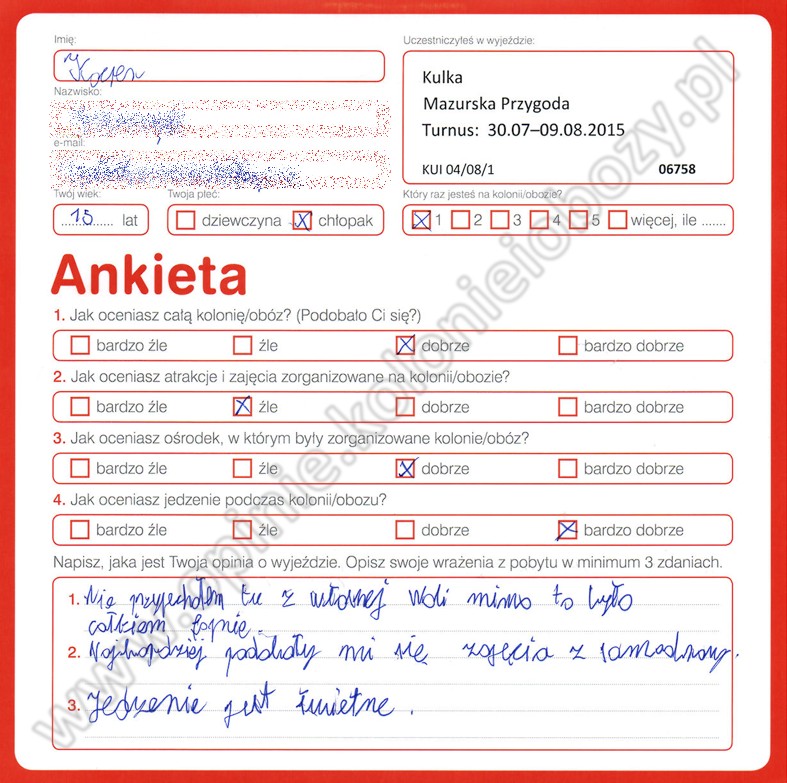 Imię:
Uczestniczyłeś w wyjeździe:
Kulka
Mazurska Przygoda
Turnus: 30.07–09.08.2015
KUI 04/08/1 06758
Nazwisko:
e-mail:
Twój wiek: Twoja płeć: Który raz jesteś na kolonii/obozie?
15 lat dziewczyna chłopak 1 2 3 4 5 więcej, ile .......
Ankieta
1. Jak oceniasz całą kolonię/obóz? (Podobało Ci się?)
bardzo źle źle dobrze bardzo dobrze
2. Jak oceniasz atrakcje i zajęcia zorganizowane na kolonii/obozie?
bardzo źle źle dobrze bardzo dobrze
3. Jak oceniasz ośrodek, w którym były zorganizowane kolonie/obóz?
bardzo źle źle dobrze bardzo dobrze
4. Jak oceniasz jedzenie podczas kolonii/obozu?
bardzo źle źle dobrze bardzo dobrze
Napisz, jaka jest Twoja opinia o wyjeździe. Opisz swoje wrażenia z pobytu w minimum 3 zdaniach.
1. Nie przyjechałem tu z własnej woli mimo to było
całkiem fajnie.
2. Najbardziej podobały mi się zajęcia z samoobrony.
3. Jedzenie jest świetne.
www.opinie.kolonieiobozy.pl